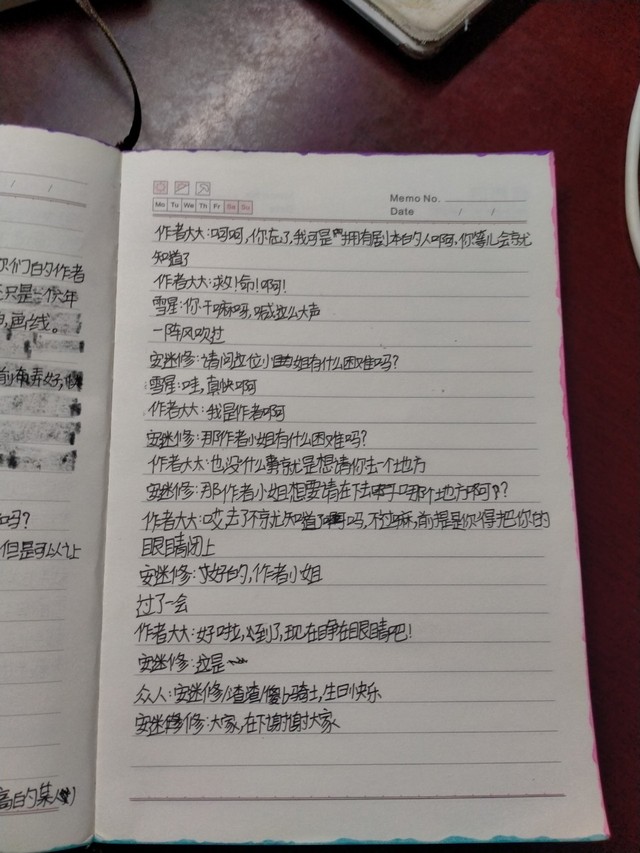 你们的作者
只是一个年
,画线。
前布弄好,
吗?
但是可以让
高的某
Mo Tu We Th Fr Sa Su
Memo No.
Date / /
作者大大:呵呵,你在了,我可是拥有剧本的人啊,你等儿会就
知道了
作者大大:救!命!啊!
雪星:你干嘛呀,喊这么大声
一阵风吹过
安迷修:请问这位小姐有什么困难吗?
雪星:哇,真快啊
作者大大:我是作者啊
安迷修:那作者小姐有什么困难吗?
作者大大:也没什么事就是想请你去一个地方
安迷修:那作者小姐想要请在下去那个地方啊?
作者大大:哎,去了不就知道了吗,不过嘛,前提是你得把你的
眼睛闭上
安迷修:好的,作者小姐
过了一会
作者大大:好啦,到了,现在睁在眼睛吧!
安迷修:这是
众人:安迷修/渣渣/傻b骑士,生日快乐
安迷修:大家,在下谢谢大家